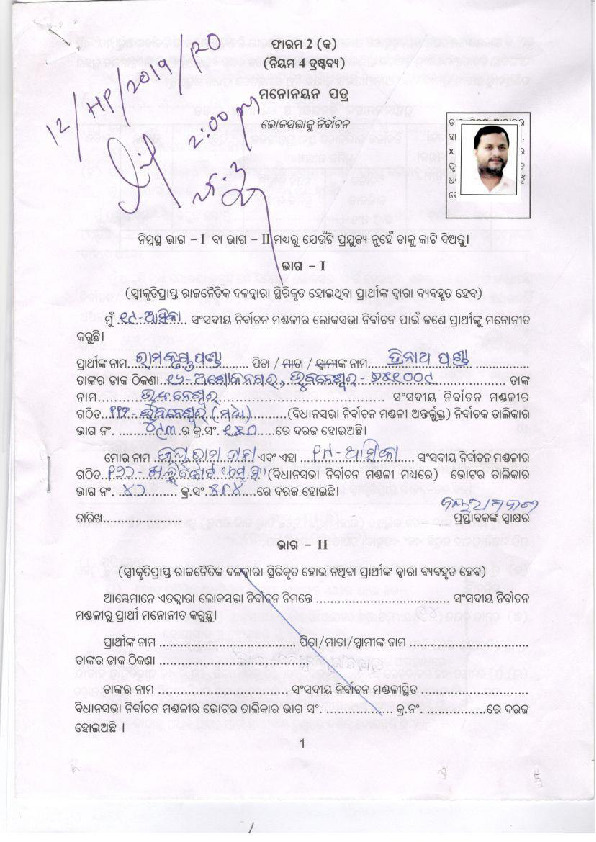 ଫାରମ 2 (କ)
(ନିୟମ 4 ଦ୍ରଷ୍ଟବ୍ୟ)
ମନୋନୟନ ପତ୍ର
ଲୋକସଭାକୁ ନିର୍ବାଚନ
12/HP/2019/RO
2:00 PM
ନିମ୍ନସ୍ଥ ଭାଗ – I ବା ଭାଗ – II ମଧ୍ୟରୁ ଯେଉଁଟି ପ୍ରଯୁଜ୍ୟ ନୁହେଁ ତାକୁ କାଟି ଦିଅନ୍ତୁ।
ଭାଗ – I
(ସ୍ବୀକୃତିପ୍ରାପ୍ତ ରାଜନୈତିକ ଦଳଦ୍ବାରା ସ୍ଥିରିକୃତ ହୋଇଥିବା ପ୍ରାର୍ଥୀଙ୍କ ଦ୍ବାରା ବ୍ୟବହୃତ ହେବ)
ମୁଁ ୧୯-ଆସିକା ସଂସଦୀୟ ନିର୍ବାଚନ ମଣ୍ଡଳୀର ଲୋକସଭା ନିର୍ବାଚନ ପାଇଁ ଜଣେ ପ୍ରାର୍ଥୀଙ୍କୁ ମନୋନୀତ
କରୁଛି।
ପ୍ରାର୍ଥୀଙ୍କ ନାମ ରାମକୃଷ୍ଣ ପଣ୍ଡା ପିତା / ମାତା / ସ୍ବାମୀଙ୍କ ନାମ ତ୍ରିନାଥ ପଣ୍ଡା
ତାଙ୍କର ଡାକ ଠିକଣା ୧୬-ଅଶୋକନଗର, ଭୁବନେଶ୍ବର-୭୫୧୦୦୯ ତାଙ୍କ
ନାମ ଭୁବନେଶ୍ବର ସଂସଦୀୟ ନିର୍ବାଚନ ମଣ୍ଡଳୀର
ଗଠିତ ୧୧୨-ଭୁବନେଶ୍ବର (ମଧ୍ୟ) (ବିଧାନସଭା ନିର୍ବାଚନ ମଣ୍ଡଳୀ ଅନ୍ତର୍ଭୁକ୍ତ) ନିର୍ବାଚକ ତାଲିକାର
ଭାଗ ନଂ. ର କ୍ର.ସଂ. ରେ ଦରଜ ହୋଇଅଛି।
ମୋର ନାମ ଏବଂ ଏହା ୧୯-ଆସିକା ସଂସଦୀୟ ନିର୍ବାଚନ ମଣ୍ଡଳୀର
ଗଠିତ (ବିଧାନସଭା ନିର୍ବାଚନ ମଣ୍ଡଳୀ ମଧ୍ୟରେ) ଭୋଟର ତାଲିକାର
ଭାଗ ନଂ. କ୍ର.ସଂ. ରେ ଦରଜ ହୋଇଛି।
ତାରିଖ..................... ପ୍ରସ୍ତାବକଙ୍କ ସ୍ବାକ୍ଷର
ଭାଗ – II
(ସ୍ବୀକୃତିପ୍ରାପ୍ତ ରାଜନୈତିକ ଦଳଦ୍ବାରା ସ୍ଥିରିକୃତ ହୋଇ ନଥିବା ପ୍ରାର୍ଥୀଙ୍କ ଦ୍ବାରା ବ୍ୟବହୃତ ହେବ)
ଆମ୍ଭେମାନେ ଏତଦ୍ବାରା ଲୋକସଭା ନିର୍ବାଚନ ନିମନ୍ତେ .................................... ସଂସଦୀୟ ନିର୍ବାଚନ
ମଣ୍ଡଳୀରୁ ପ୍ରାର୍ଥୀ ମନୋନୀତ କରୁଛୁ।
ପ୍ରାର୍ଥୀଙ୍କ ନାମ ..................................... ପିତା/ମାତା/ସ୍ବାମୀଙ୍କ ନାମ .................................
ତାଙ୍କର ଡାକ ଠିକଣା .....................................
ତାଙ୍କର ନାମ ................................... ସଂସଦୀୟ ନିର୍ବାଚନ ମଣ୍ଡଳୀସ୍ଥିତ .............................
ବିଧାନସଭା ନିର୍ବାଚନ ମଣ୍ଡଳୀର ଭୋଟର ତାଲିକାର ଭାଗ ସଂ. .................. କ୍ର.ନଂ. ................ରେ ଦରଜ
ହୋଇଅଛି ।
1